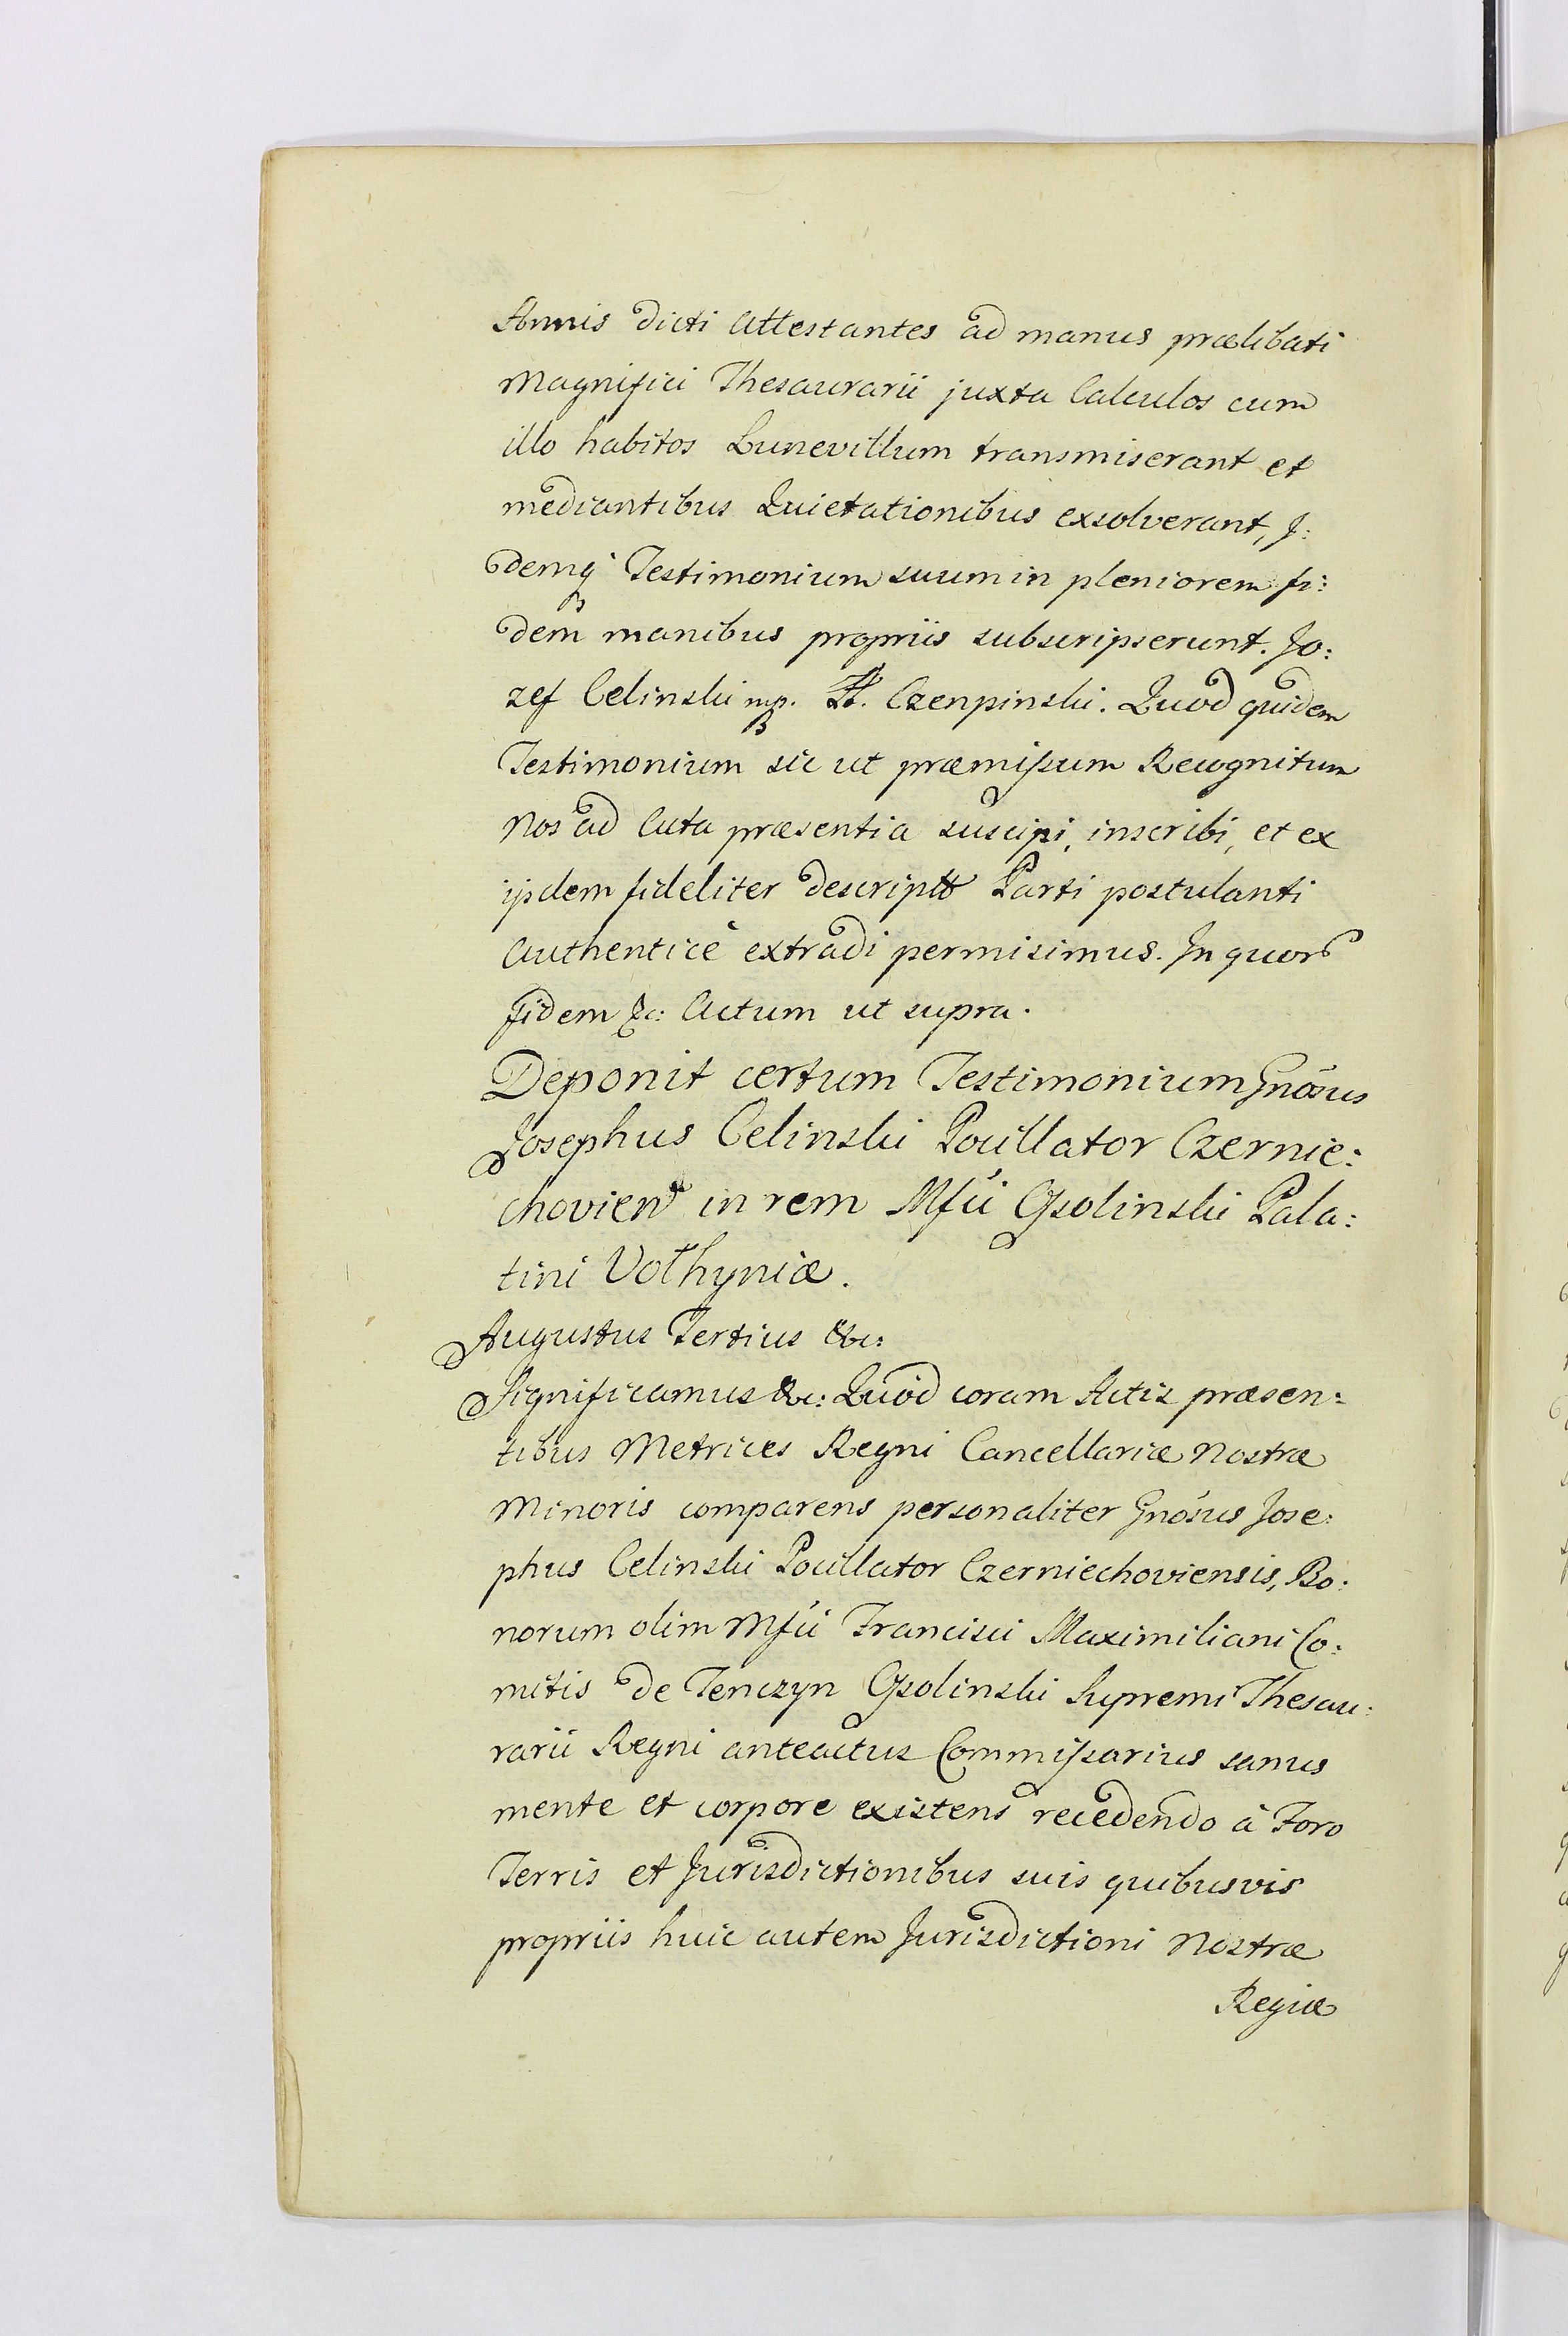 Annis dicti Attestantes ad manus prælibati
Magnifici Thesaurarii juxta Calculos cum
illo habitos Lunevillum transmiserant et
mediantibus Quietationibus exsolverant, I:
demq̃ Testimonium suum in pleniorem fi:
dem manibus propriis subscripserunt. Jo:
zef Celinski mp. Czenpinski. Quod quidem
Testimonium sic ut præmissum Recognitum
Nos ad Acta præsentia suscipi, inscribi, et ex
ijsdem fideliter descriptũ Parti postulanti
Authenticè extradi permisimus. In quorũ
fidem &c: Actum ut supra.
Deponit certum Testimonium Gnõsus
Josephus Celinski Pocillator Czernie:
choviens in rem Mfci Ossolinski Pala:
tini Volhyniæ.
Augustus Tertius &c:
Significamus &c: Quod coram Actis præsen:
tibus Metrices Regni Cancellariæ Nostræ
Minoris comparens personaliter Gnõsus Jose:
phus Celinski Pocillator Czerniechoviensis, Bo:
norum olim Mfci Francisci Maximiliani Co:
mitis de Tenczyn Ossolinski Supremi Thesau:
rarii Regni anteactus Commissarius sanus
mente et corpore existens recedendo à Foro
Terris et Jurisdictionibus suis quibusvis
propriis huic autem Jurisdictioni Nostræ
Regiæ